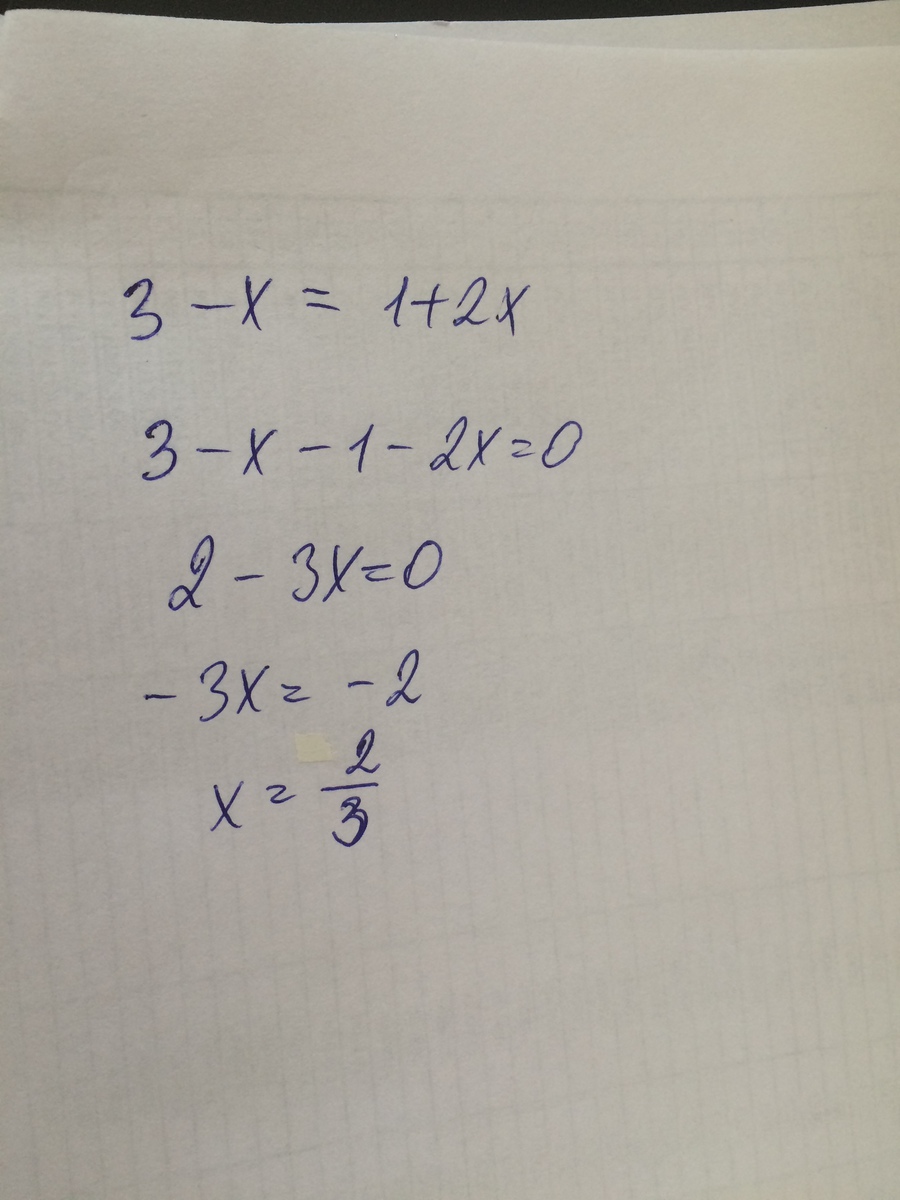 3 - x = 1+2x
3 - x - 1 - 2x = 0
2 - 3x = 0
- 3x = - 2
x = 2/3